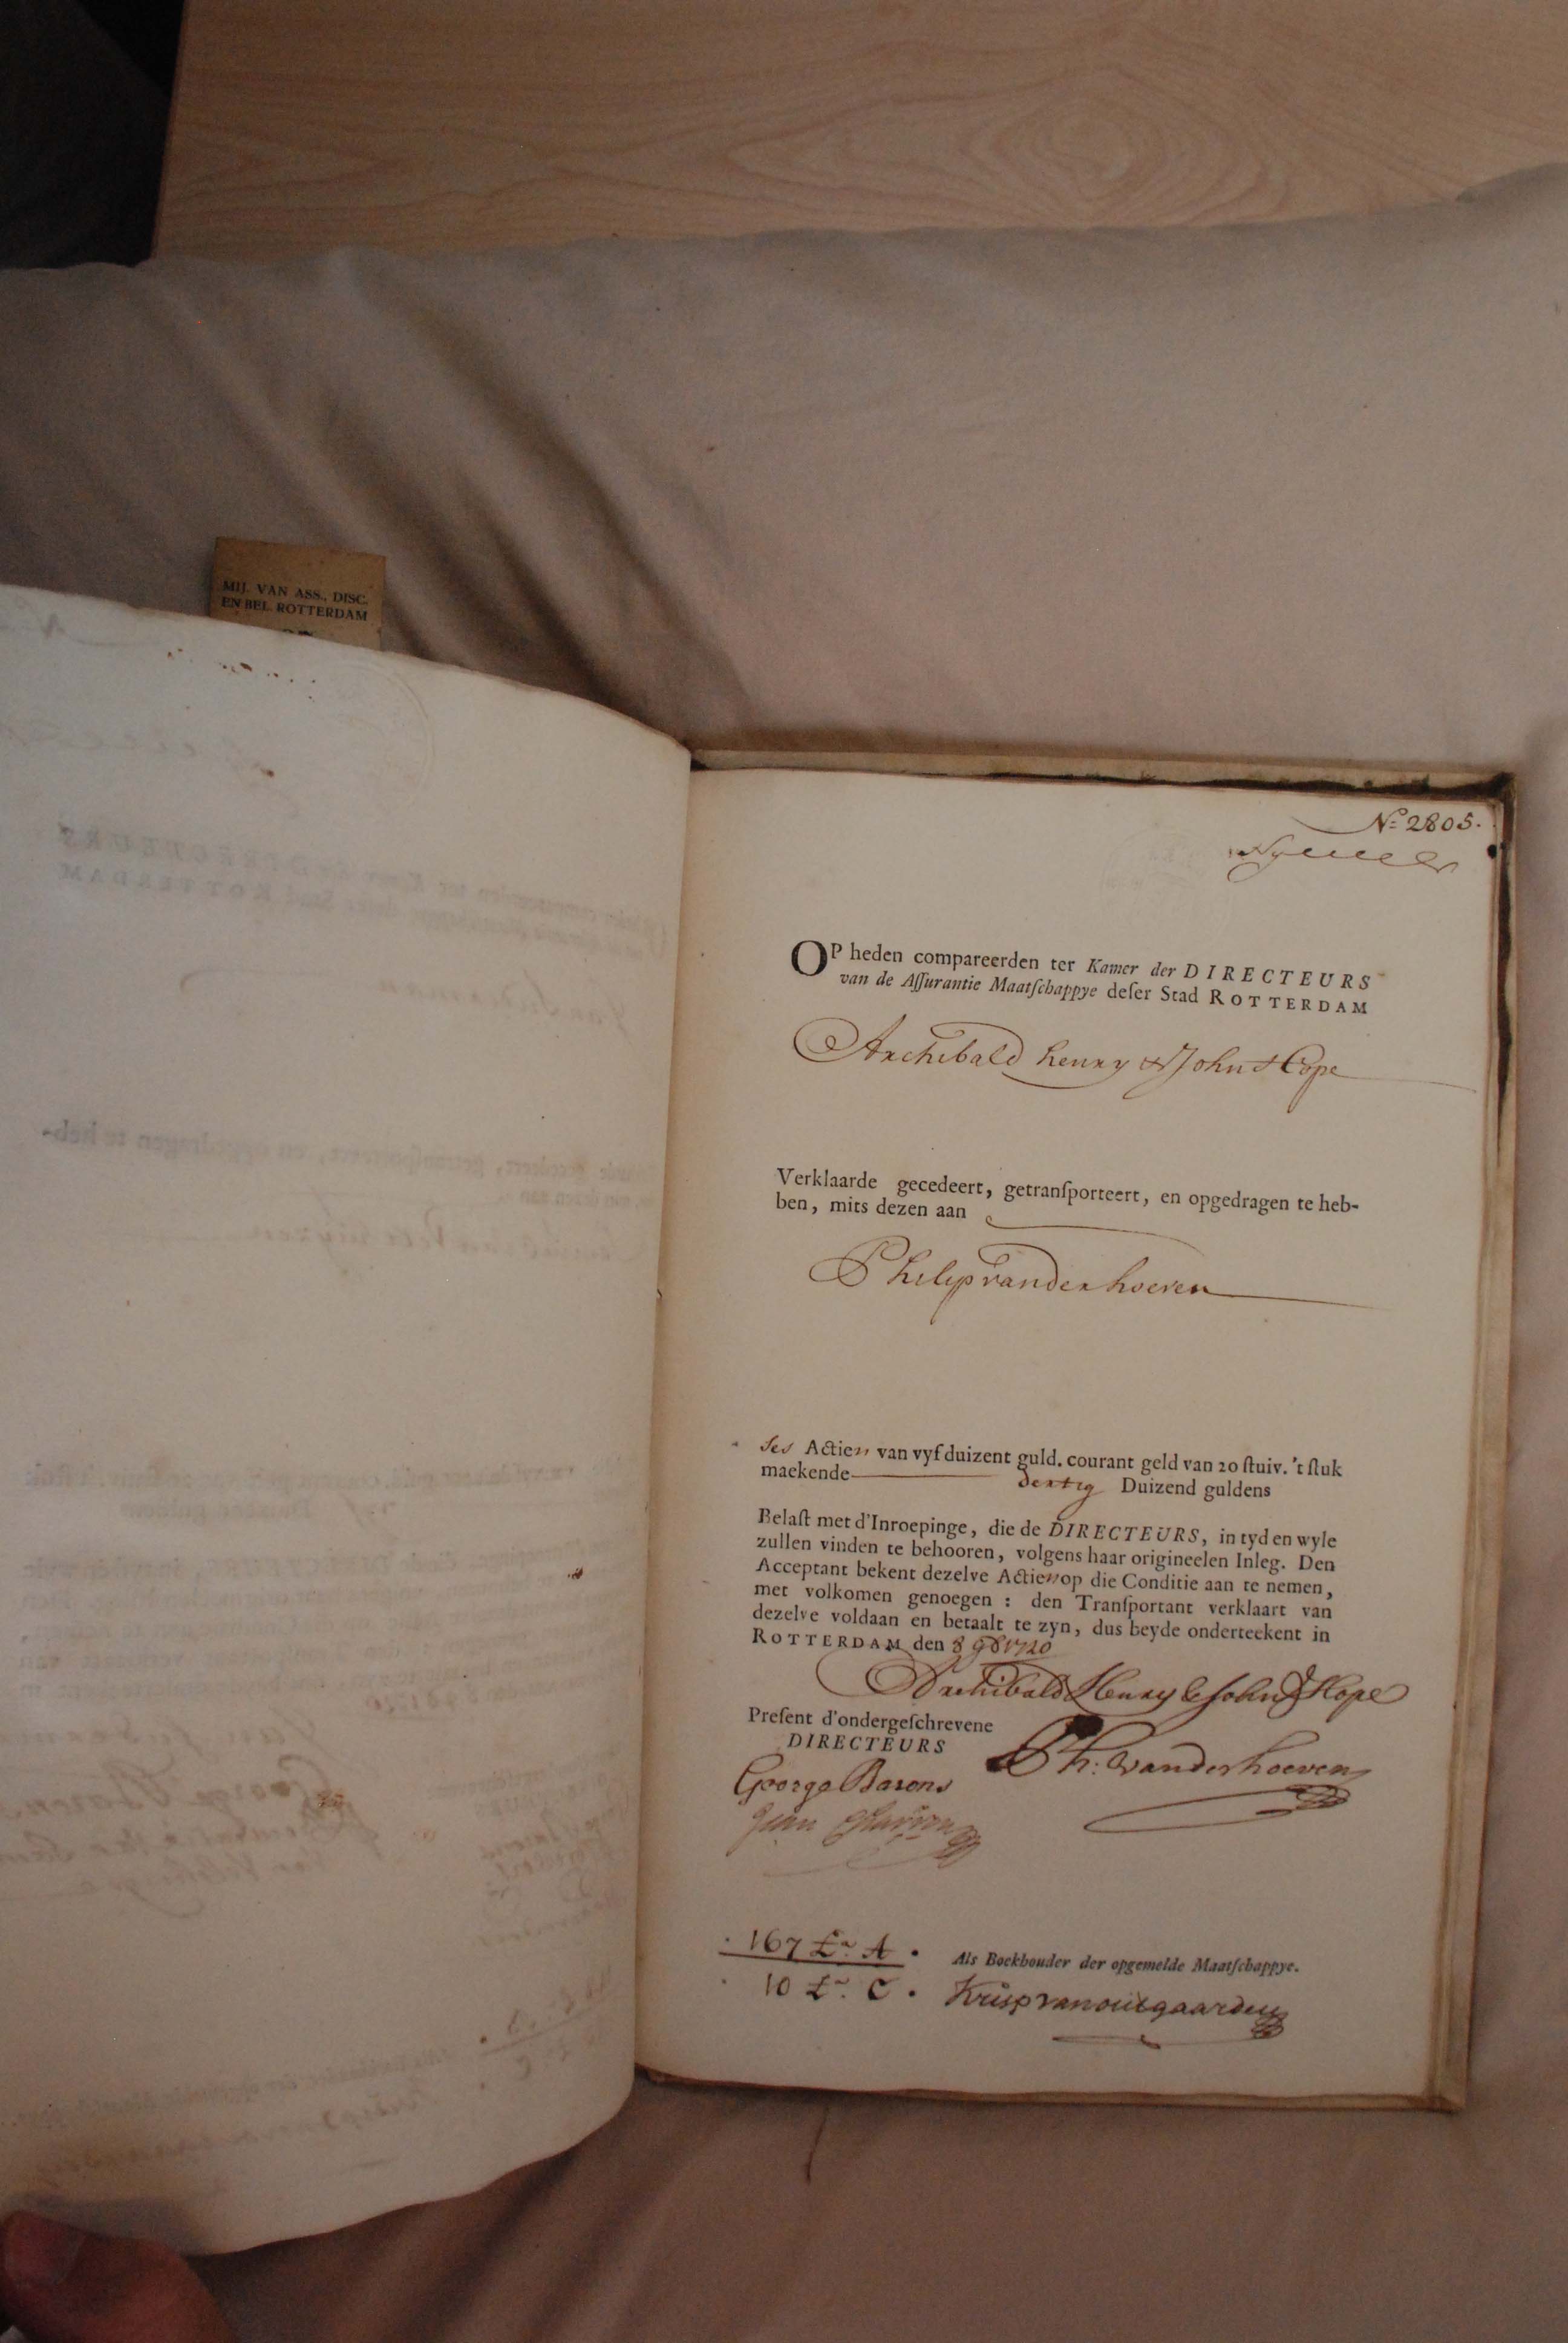 MIJ. VAN ASS., DISC.
EN BEL. ROTTERDAM
No 2805.
OP heden compareerden ter Kamer der DIRECTEURS
van de Aſſurantie Maatſchappye deſer Stad ROTTERDAM
Archibald henry & John Hope
Verklaarde gecedeert, getranſporteert, en opgedragen te heb-
ben, mits dezen aan
Philip vander hoeven
Ses Actien van vyf duizent guld. courant geld van 20 ſtuiv. 't ſtuk
maekende dertig Duizend guldens
Belaſt met d'Inroepinge, die de DIRECTEURS, in tyd en wyle
zullen vinden te behooren, volgens haar origineelen Inleg. Den
Acceptant bekent dezelve Actien op die Conditie aan te nemen,
met volkomen genoegen : den Tranſportant verklaart van
dezelve voldaan en betaalt te zyn, dus beyde onderteekent in
ROTTERDAM den 8 9b 1720
Archibald Henry & John Hope
Preſent d'ondergeſchrevene
DIRECTEURS
Ph: vander hoeven
George Barons
Jean
167 Lr A
10 Lr. C.
Als Boekhouder der opgemelde Maatſchappye.
Krisp van outgaarden